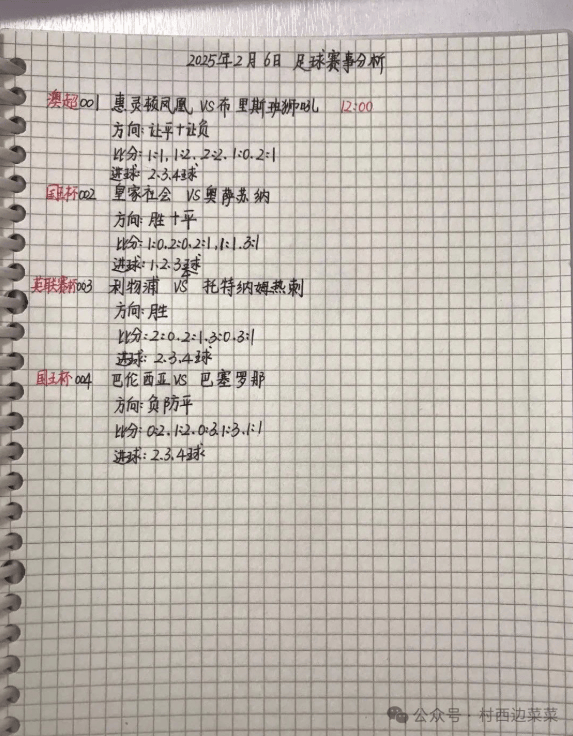 2025年2月6日 足球赛事分析
澳超001 惠灵顿凤凰 VS布里斯班狮吼 12:00
方向:让平十让负
比分:1:1, 1:2、2:2、1:0、2:1
进球:2、3、4球
国王杯002 皇家社会 VS奥萨苏纳
方向:胜十平
比分:1:0、2:0、2:1,1:1、3:1
进球:1、2、3球
英联赛杯003 利物浦 VS 托特纳姆热刺
方向:胜
比分:2:0、2:1、3:0、3:1
进球:2、3、4球
国王杯004 巴伦西亚VS 巴塞罗那
方向:负防平
比分:0:2、1:2、0:3、1:3、1:1
进球:2、3、4球
公众号·村西边菜菜